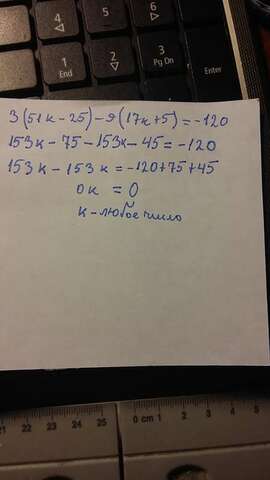 4
5
6
1
End
2
3
Pg Dn
Enter
3(51к-25)-9(17к+5)=-120
153к-75-153к-45=-120
153к-153к=-120+75+45
0к=0
к-любое число
21 22 23 24 25
0 cm 1 2 3 4 5